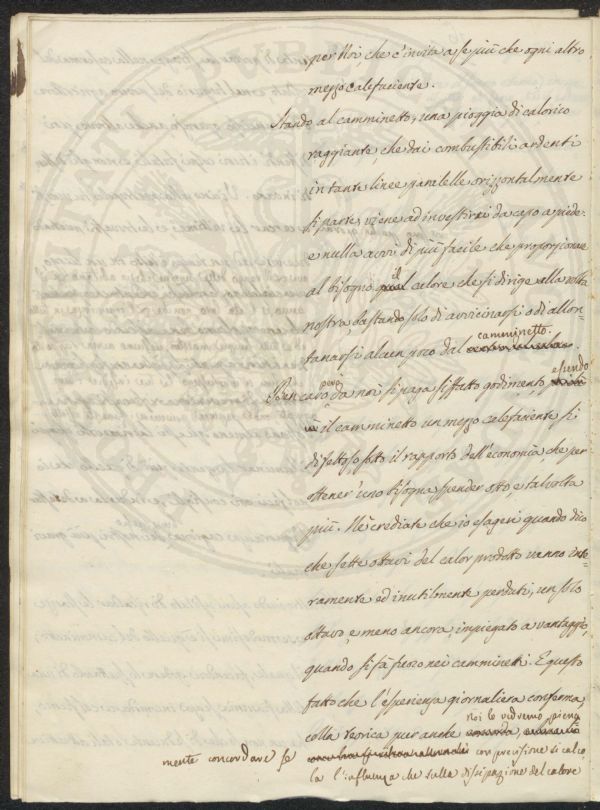 per Noi, che c'invita a se più che ogni altro
mezzo calefaciente.
Stando al camminetto, una pioggia di calorico
raggiante, che dai combustibili ardenti
in tante linee paralelle orizzontalmente
si parte, viene ad investirvi da capo a piede.
e nulla avvi di più facile che proporzionare
al bisogno il calore che si dirige alla volta
nostra, bastando solo di avvicinarsi o di allon=
tanarsi alcun poco dal camminetto.
Ben caro però da noi si paga siffatto godimento, essendo
il camminetto un mezzo calefaciente sì
difettoso sotto il rapporto dell'economia, che per
ottener uno bisogna spender otto, e talvolta
più. Nè crediate che io esageri quando dico
che sette ottavi del calor prodotto vanno inte=
ramente ed inutilmente perduti, un solo
ottavo, e meno ancora, impiegato a vantaggio,
quando si fà fuoco nei camminetti. E questo
fatto che l'esperienza giornaliera conferma,
colla teorica pur anche noi lo vedremo piena
mente concordare se con precisione si calco
la l'influenza che sulla dissipazione del calore